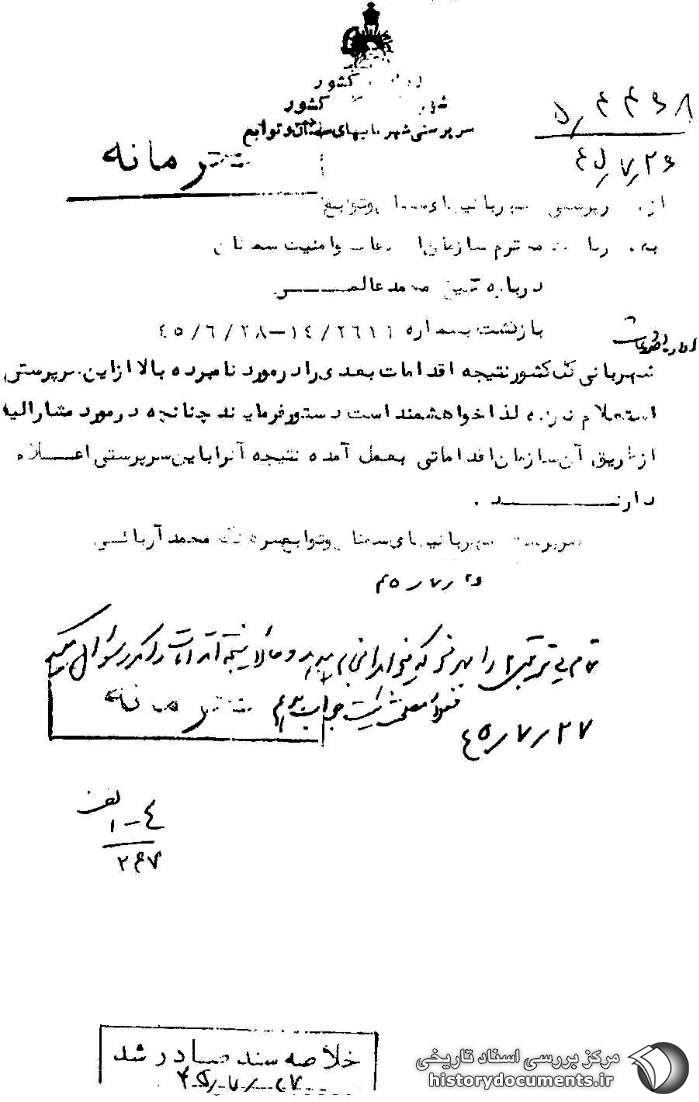 کشور
کشور
سرپرستی شهربانیهای سمنان و توابع
۵/۴۴۶۸
۴۵/۷/۲۶
محترمانه
از: سرپرستی شهربانیهای سمنان و توابع
به: ریاست محترم سازمان اطلاعات و امنیت سمنان
درباره شیخ محمد عالمی
بازگشت بشماره ۱۴/۲۶۱۱-۴۵/۶/۲۸
اداره اطلاعات
شهربانی کل کشور نتیجه اقدامات بعدی را در مورد نامبرده بالا از این سرپرستی
استعلام نموده لذا خواهشمند است دستور فرمایند چنانچه در مورد مشارالیه
از طریق آن سازمان اقداماتی بعمل آمده نتیجه آنرا باین سرپرستی اعلام
دارند .
سرپرست شهربانیهای سمنان و توابع سرهنگ محمد آربائی
۴۵/۷/۲۶
را حالا نتیجه اقدامات را سوال میکند
جواب
محترمانه
۴۵/۷/۲۷
الف
۴-۱
۲۶۷
خلاصه سند صادر شد
۴۵/۷/۲۷
مرکز بررسی اسناد تاریخی
historydocuments.ir